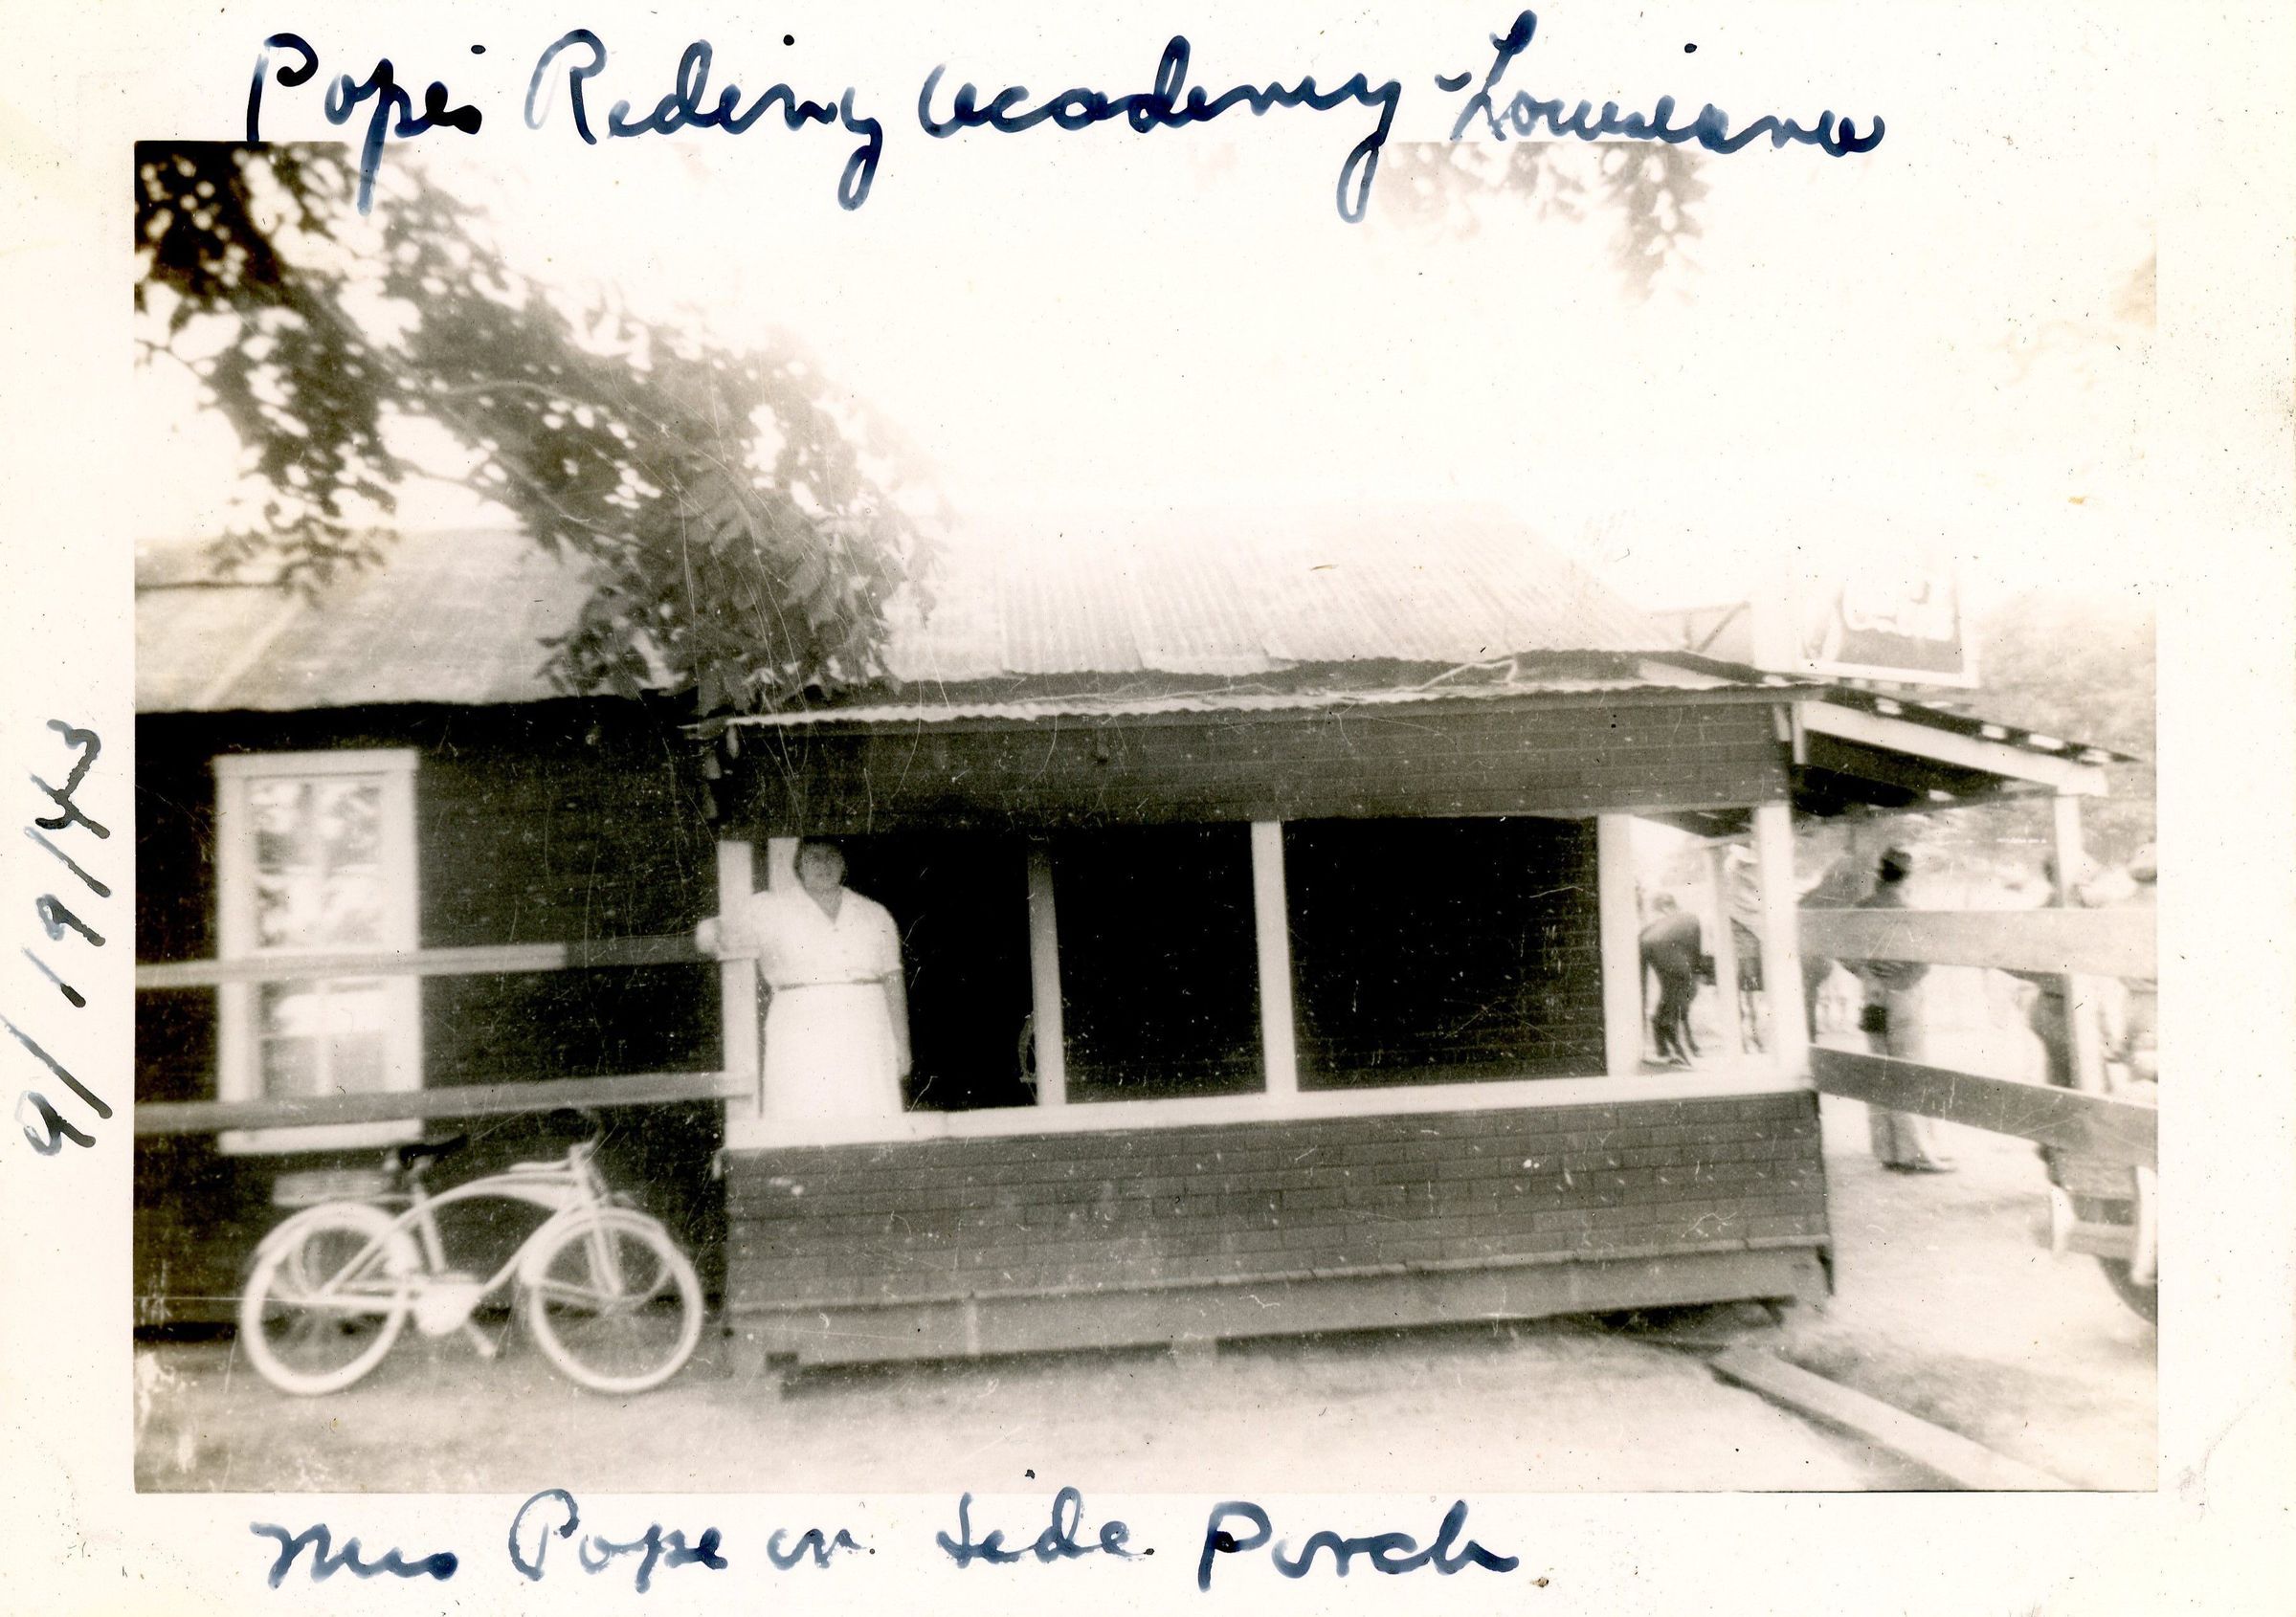 Pope's Riding Academy - Louisiana
9/19/43
Mrs Pope on side Porch